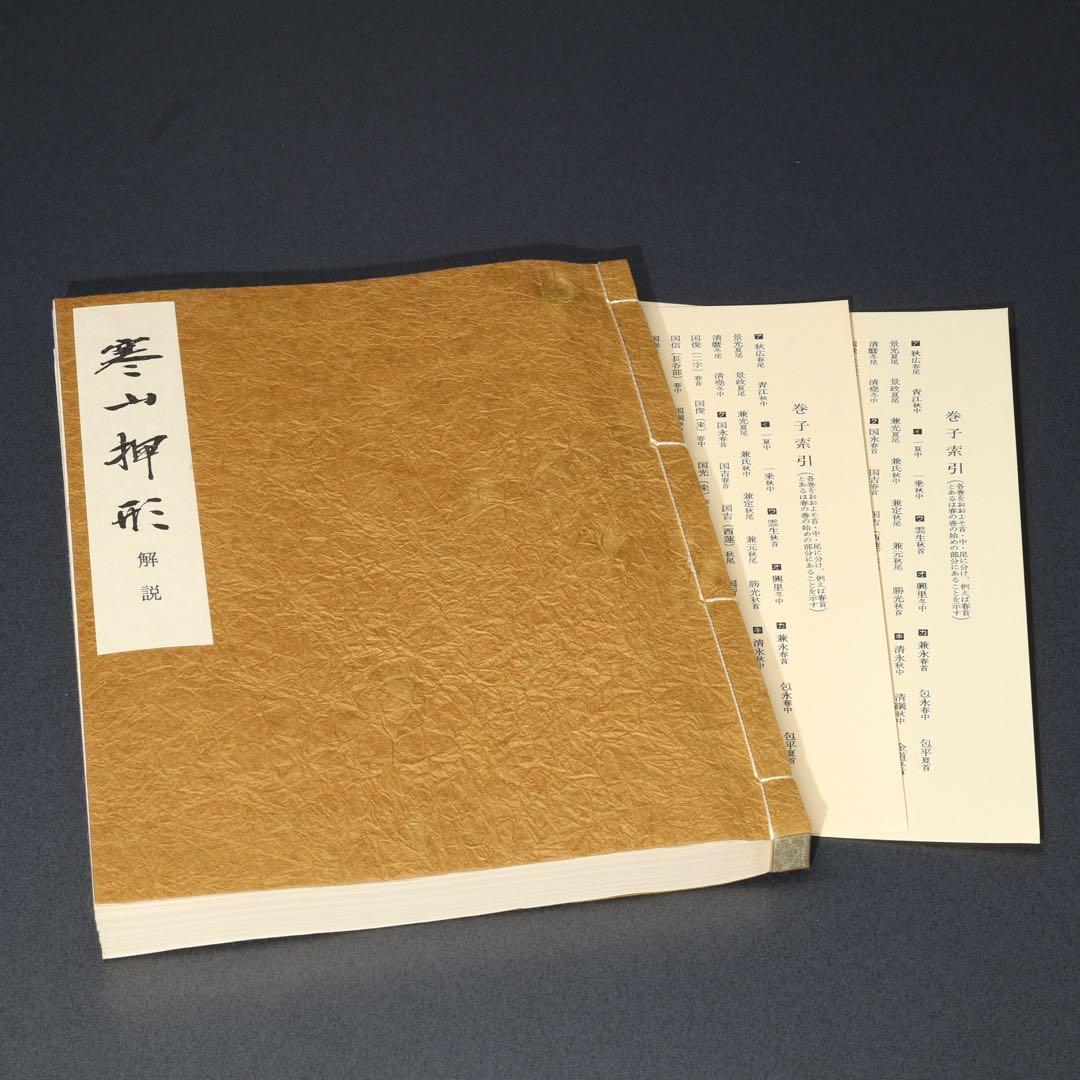 寒山押形
解説
巻子索引(各巻をおおよそ首・中・尾に分け、例えば春首
とあるは春の巻の始めの部分にあることを示す)
ア 秋広春尾 青江秋中 イ 一夏中 一乗秋中 ウ 雲生秋首 オ 興里冬中 カ 兼永春首 包永春中 包平夏首
景光夏尾 景政夏尾 兼光夏尾 兼氏秋中 兼定秋尾 兼元秋尾 勝光秋首 キ 清永秋中
清麿冬尾 清堯冬中 ク 国永春首 国吉春首 国吉(西蓮)秋尾
国俊(二字)春首 国俊(来)春中 国光(来)
国信(長谷部)春中
巻子索引(各巻をおおよそ首・中・尾に分け、例えば春首
とあるは春の巻の始めの部分にあることを示す)
ア 秋広春尾 青江秋中 イ 一夏中 一乗秋中 ウ 雲生秋首 オ 興里冬中 カ 兼永春首 包永春中 包平夏首
景光夏尾 景政夏尾 兼光夏尾 兼氏秋中 兼定秋尾 兼元秋尾 勝光秋首 キ 清永秋中 清綱秋中
清麿冬尾 清堯冬中 ク 国永春首 国吉春首 国吉(西蓮)